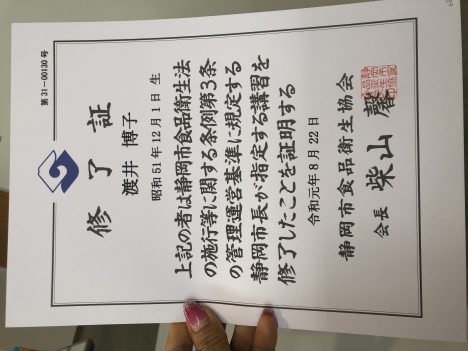 第31-00130号
修了証
渡井 博子
昭和51年12月1日生
上記の者は静岡市食品衛生法
の施行等に関する条例第3条
の管理運営基準に規定する
静岡市長が指定する講習を
修了したことを証明する
令和元年8月22日
静岡市食品衛生協会
会長 柴山 馨